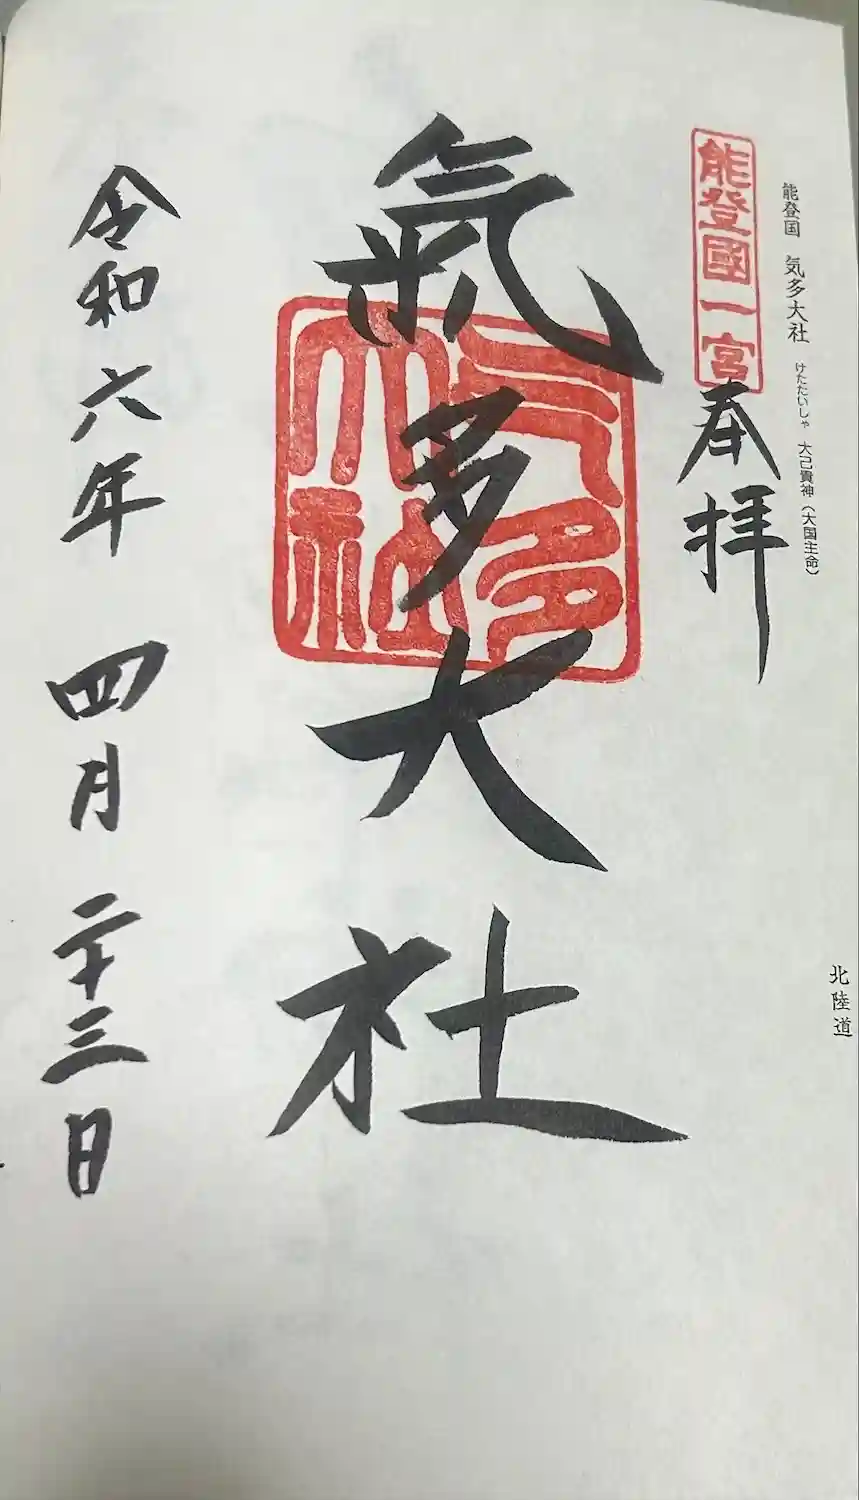 能登国 気多大社 けたたいしゃ 大己貴神（大国主命）
北陸道
能登國一宮
奉拝
氣多大社
気多大社
令和六年 四月 二十三日